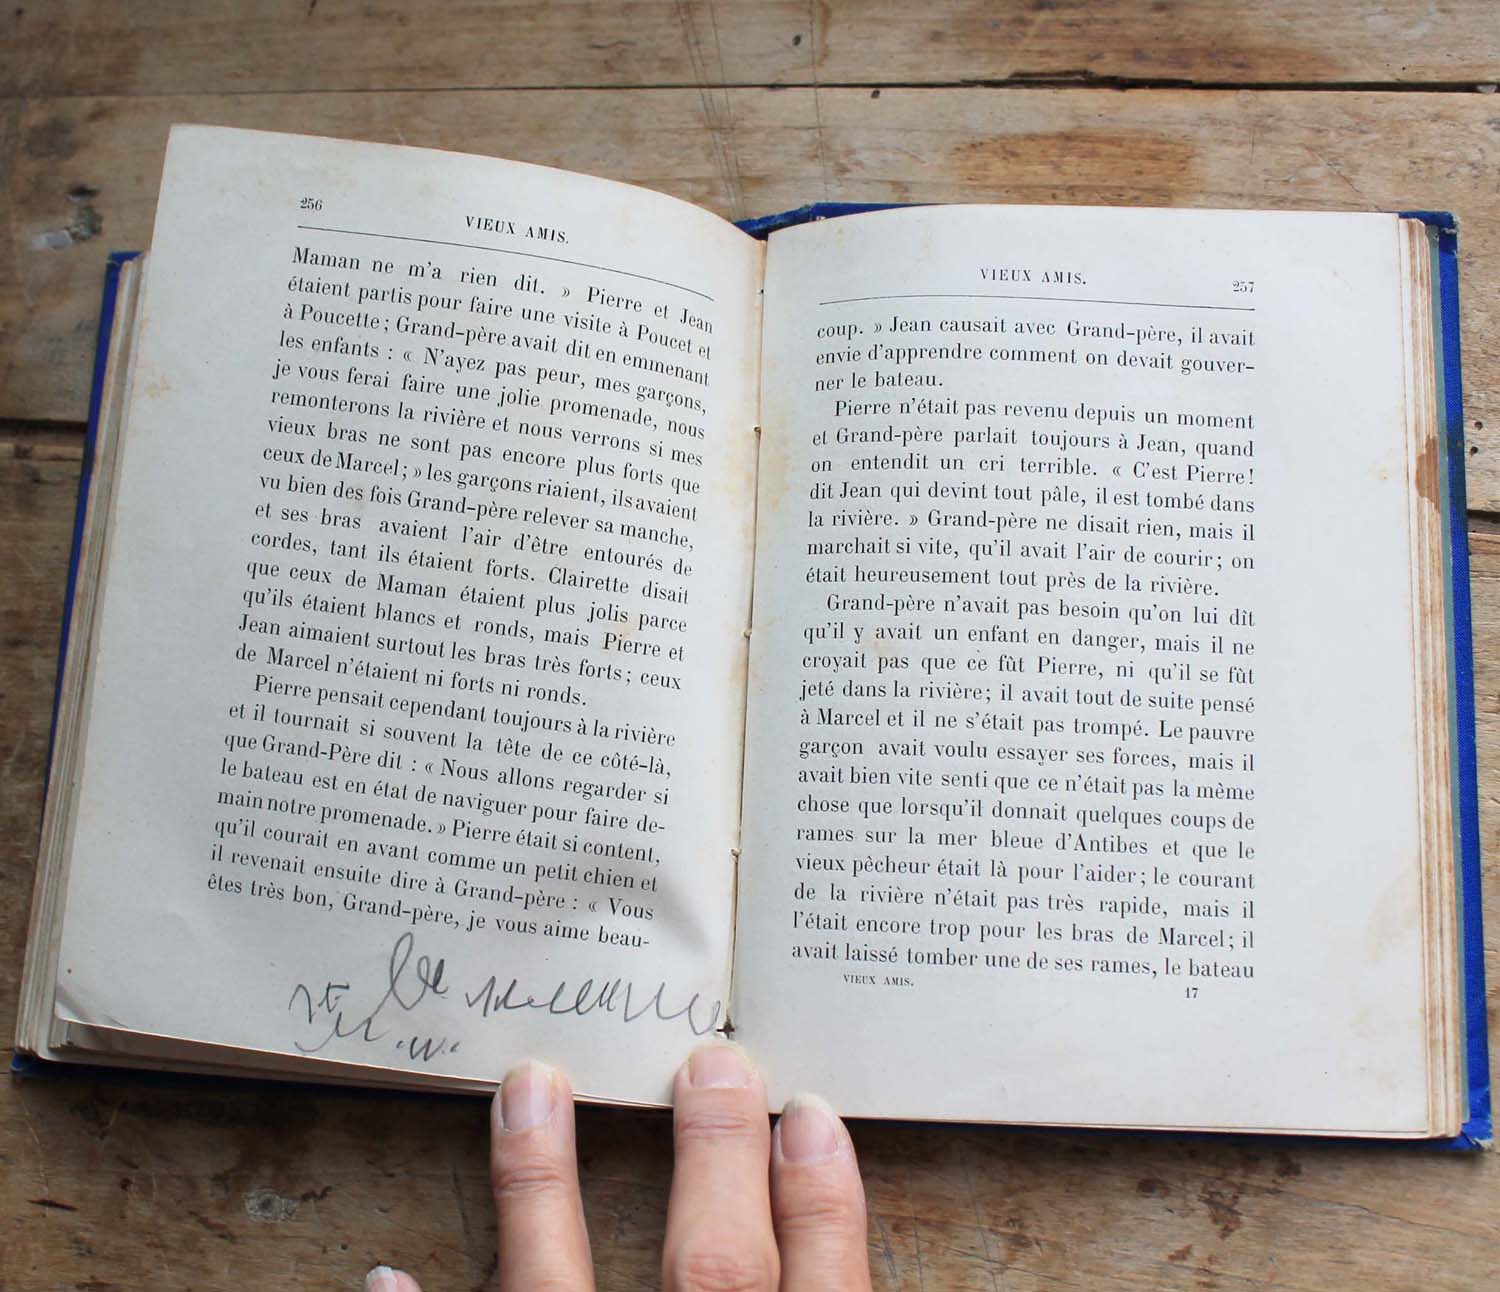 256
VIEUX AMIS.
Maman ne m'a rien dit. » Pierre et Jean
étaient partis pour faire une visite à Poucet et
à Poucette ; Grand-père avait dit en emmenant
les enfants : « N'ayez pas peur, mes garçons,
je vous ferai faire une jolie promenade, nous
remonterons la rivière et nous verrons si mes
vieux bras ne sont pas encore plus forts que
ceux de Marcel ; » les garçons riaient, ils avaient
vu bien des fois Grand-père relever sa manche,
et ses bras avaient l'air d'être entourés de
cordes, tant ils étaient forts. Clairette disait
que ceux de Maman étaient plus jolis parce
qu'ils étaient blancs et ronds, mais Pierre et
Jean aimaient surtout les bras très forts ; ceux
de Marcel n'étaient ni forts ni ronds.
Pierre pensait cependant toujours à la rivière
et il tournait si souvent la tête de ce côté-là,
que Grand-Père dit : « Nous allons regarder si
le bateau est en état de naviguer pour faire de-
main notre promenade. » Pierre était si content,
qu'il courait en avant comme un petit chien et
il revenait ensuite dire à Grand-père : « Vous
êtes très bon, Grand-père, je vous aime beau-
VIEUX AMIS.
257
coup. » Jean causait avec Grand-père, il avait
envie d'apprendre comment on devait gouver-
ner le bateau.
Pierre n'était pas revenu depuis un moment
et Grand-père parlait toujours à Jean, quand
on entendit un cri terrible. « C'est Pierre !
dit Jean qui devint tout pâle, il est tombé dans
la rivière. » Grand-père ne disait rien, mais il
marchait si vite, qu'il avait l'air de courir ; on
était heureusement tout près de la rivière.
Grand-père n'avait pas besoin qu'on lui dît
qu'il y avait un enfant en danger, mais il ne
croyait pas que ce fût Pierre, ni qu'il se fût
jeté dans la rivière ; il avait tout de suite pensé
à Marcel et il ne s'était pas trompé. Le pauvre
garçon avait voulu essayer ses forces, mais il
avait bien vite senti que ce n'était pas la même
chose que lorsqu'il donnait quelques coups de
rames sur la mer bleue d'Antibes et que le
vieux pêcheur était là pour l'aider ; le courant
de la rivière n'était pas très rapide, mais il
l'était encore trop pour les bras de Marcel ; il
avait laissé tomber une de ses rames, le bateau
VIEUX AMIS.
17